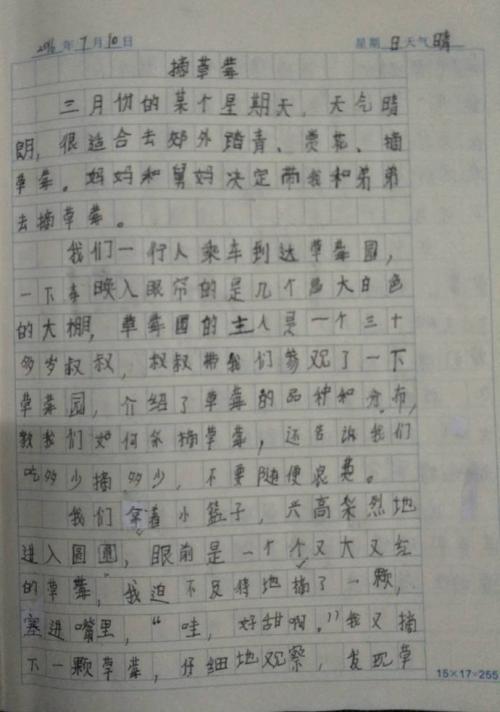 2016年7月10日 星期日天气晴
摘草莓
三月份的某个星期天,天气晴
朗,很适合去郊外踏青、赏花、摘
草莓。妈妈和舅妈决定带我和弟弟
去摘草莓。
我们一行人乘车到达草莓园,
一下车映入眼帘的是几个白色
的大棚,草莓园的主人是一个三十
多岁叔叔,叔叔带我们参观了一下
草莓园,介绍了草莓的品种和分布,
教我们如何采摘草莓,还告诉我们
吃多少摘多少,不要随便浪费。
我们拿着小篮子,兴高采烈地
进入圆圆,眼前是一个个又大又红
的草莓,我迫不及待地摘了一颗,
塞进嘴里,“哇,好甜啊。”我又摘
下一颗草莓,仔细地观察,发现草
15×17=255